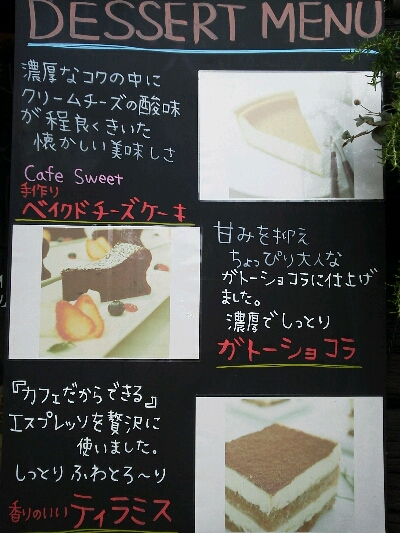 DESSERT MENU
濃厚なコクの中に
クリームチーズの酸味
が程良くきいた
懐かしい美味しさ
Cafe Sweet
手作り
ベイクドチーズケーキ
甘みを抑え
ちょっぴり大人な
ガトーショコラに仕上げ
ました。
濃厚でしっとり
ガトーショコラ
『カフェだからできる』
エスプレッソを贅沢に
使いました。
しっとりふわとろ～り
香りのいい ティラミス